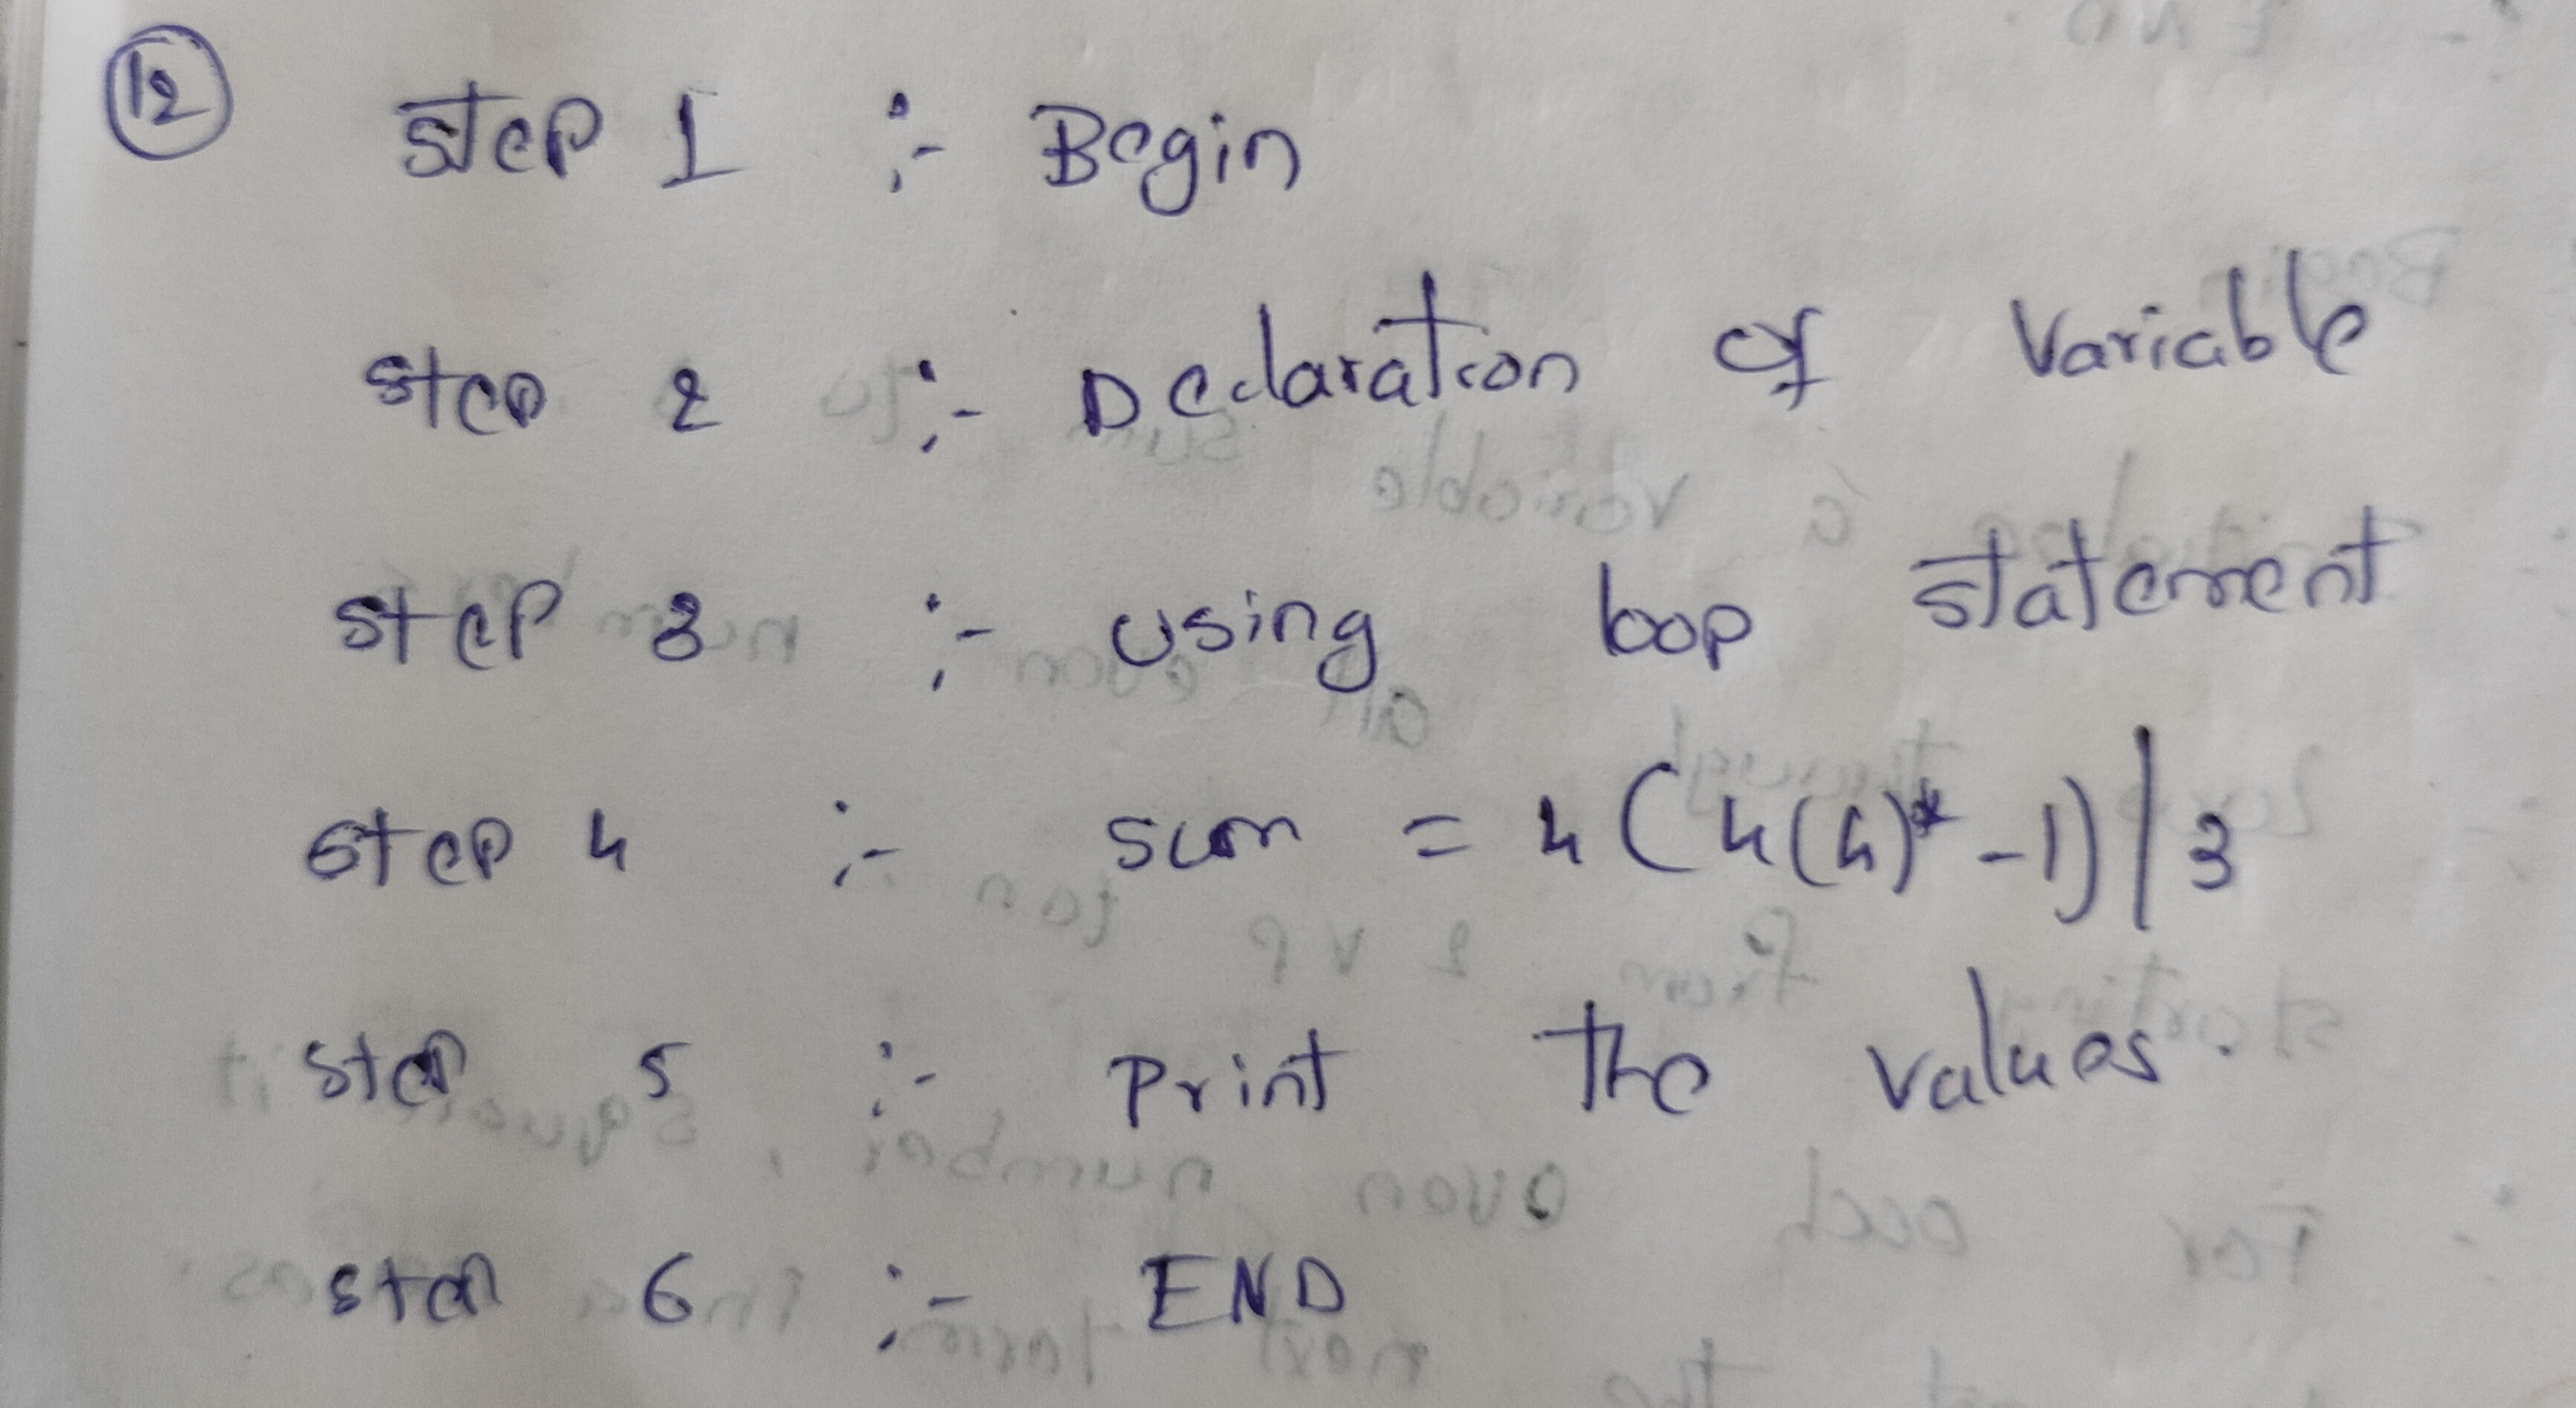 12 Step 1 :- Begin
Step 2 :- Declaration of Variable
Step 3 :- using loop statement
Step 4 :- sum = 4(4(4)* -1)|3
Step 5 :- Print the values.
Step 6 :- END